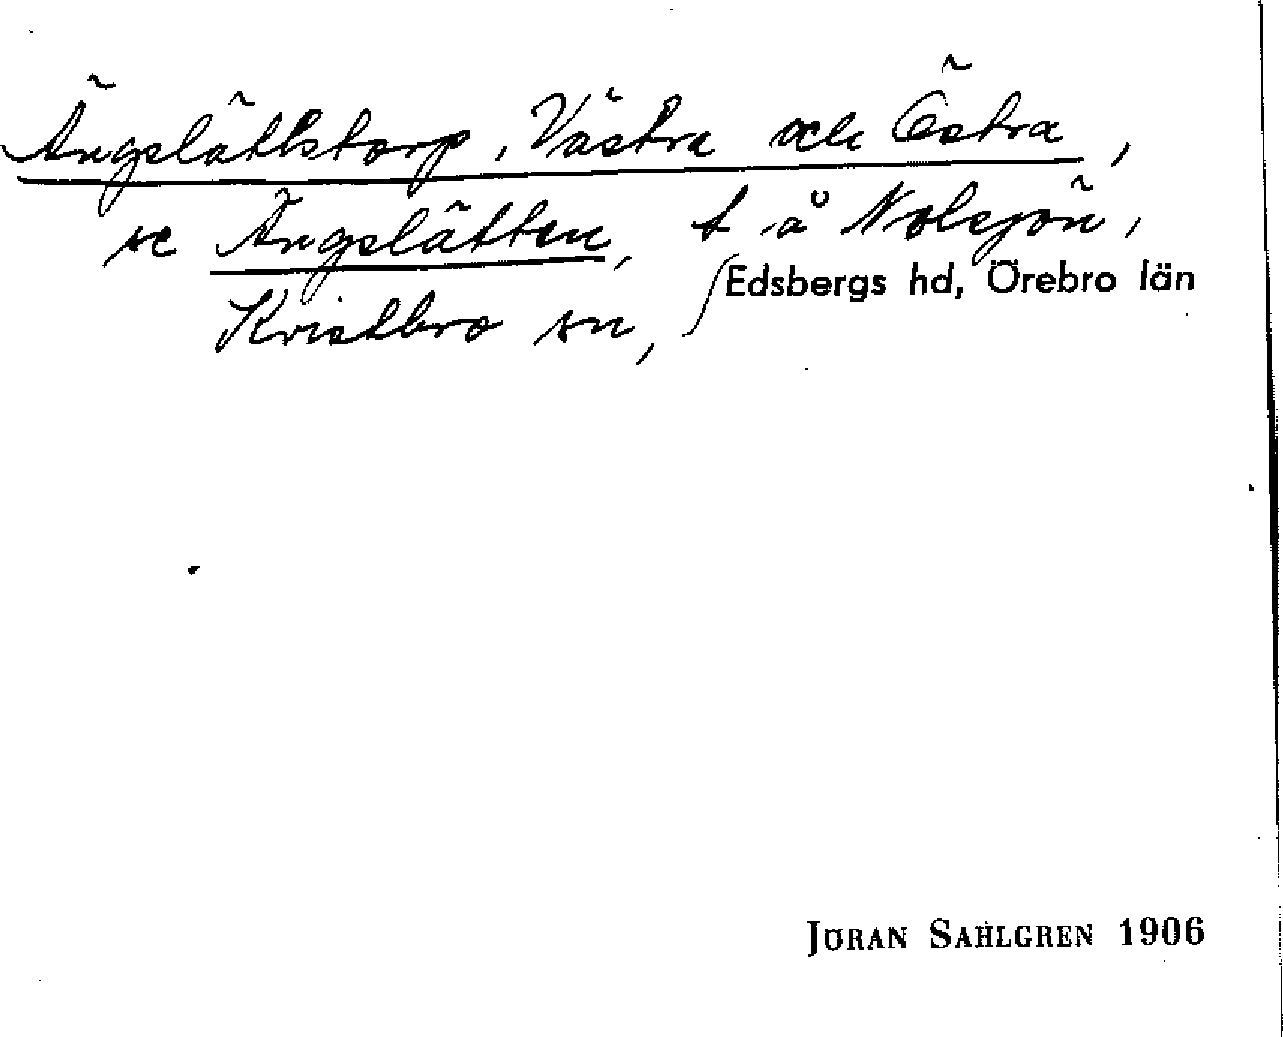 Ängslättstorp, Västra och Östra,
se Ängslätten, t. å Nolsjön,
Kristbro sn, Edsbergs hd, Örebro län
JÖRAN SAHLGREN 1906